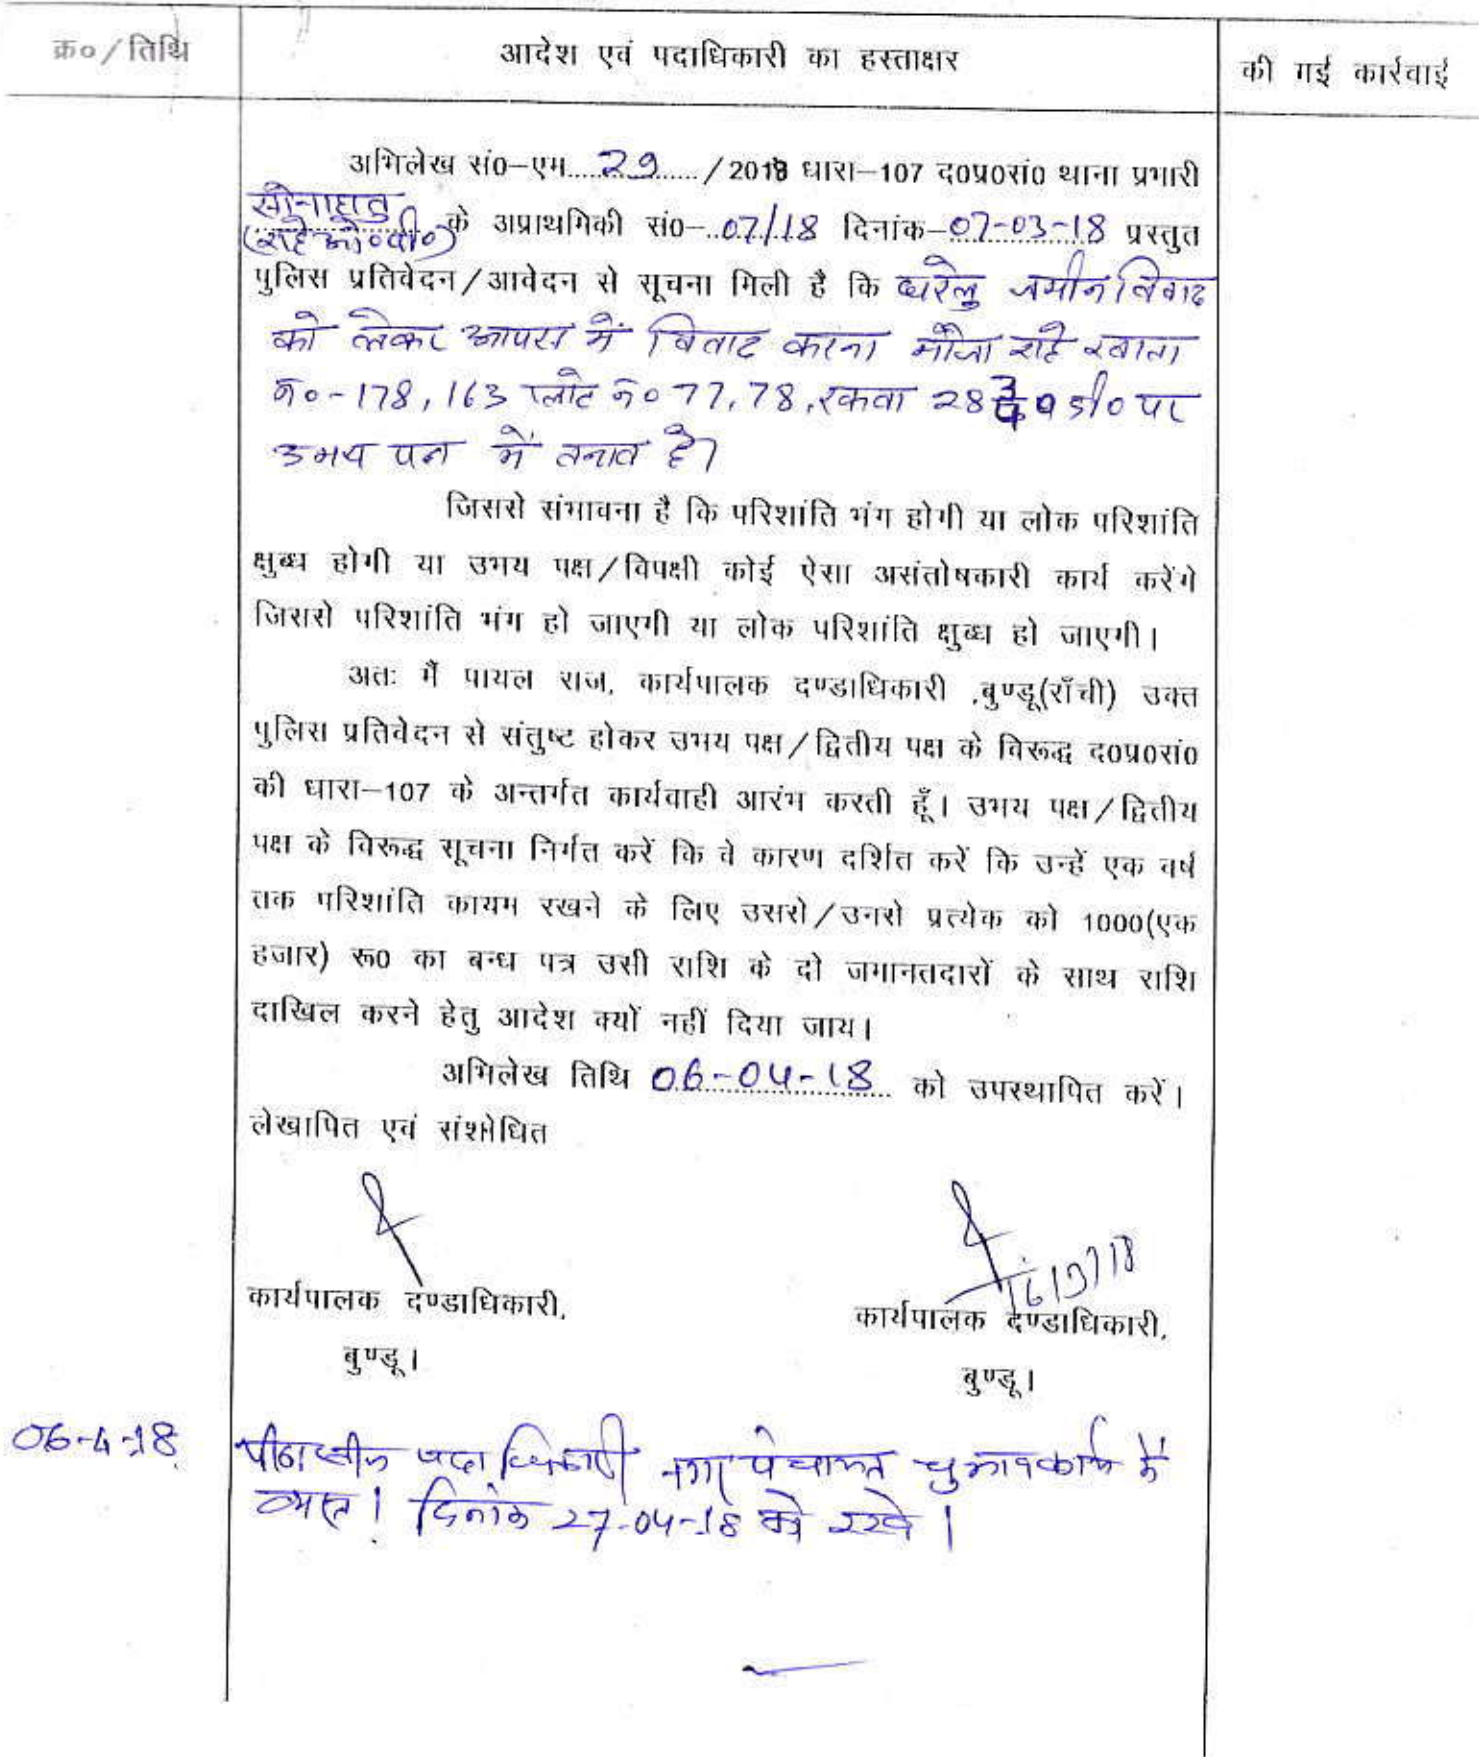 क्र०/तिथि
आदेश एवं पदाधिकारी का हस्ताक्षर
की गई कार्रवाई
अभिलेख सं०-एम....29..../2018 धारा-107 द०प्र०सं० थाना प्रभारी
सोनाहातु
(राहे ओ०पी०) के अप्राथमिकी सं०-..07/18 दिनांक-07-03-18 प्रस्तुत
पुलिस प्रतिवेदन/आवेदन से सूचना मिली है कि घरेलु जमीन विवाद
को लेकर आपस में विवाद करना मौजा राहे खाता
नं०-178, 163 प्लोट नं० 77, 78, रकवा 28 डी० पर
उभय पक्ष में तनाव है।
जिससे संभावना है कि परिशांति भंग होगी या लोक परिशांति
क्षुब्ध होगी या उभय पक्ष/विपक्षी कोई ऐसा असंतोषकारी कार्य करेंगे
जिससे परिशांति भंग हो जाएगी या लोक परिशांति क्षुब्ध हो जाएगी।
अतः मैं पायल राज, कार्यपालक दण्डाधिकारी ,बुण्डू(राँची) उक्त
पुलिस प्रतिवेदन से संतुष्ट होकर उभय पक्ष/द्वितीय पक्ष के विरूद्ध द०प्र०सं०
की धारा-107 के अन्तर्गत कार्यवाही आरंभ करती हूँ। उभय पक्ष/द्वितीय
पक्ष के विरूद्ध सूचना निर्गत करें कि वे कारण दर्शित करें कि उन्हें एक वर्ष
तक परिशांति कायम रखने के लिए उससे/उनसे प्रत्येक को 1000(एक
हजार) रू० का बन्ध पत्र उसी राशि के दो जमानतदारों के साथ राशि
दाखिल करने हेतु आदेश क्यों नहीं दिया जाय।
अभिलेख तिथि 06-04-18 को उपस्थापित करें।
लेखापित एवं संशोधित
16/3/18
कार्यपालक दण्डाधिकारी,
कार्यपालक दण्डाधिकारी,
बुण्डू।
बुण्डू।
06-4-18
पीठासीन पदाधिकारी नगर पंचायत चुनाव कार्य में
व्यस्त। दिनांक 27-04-18 को रखे।